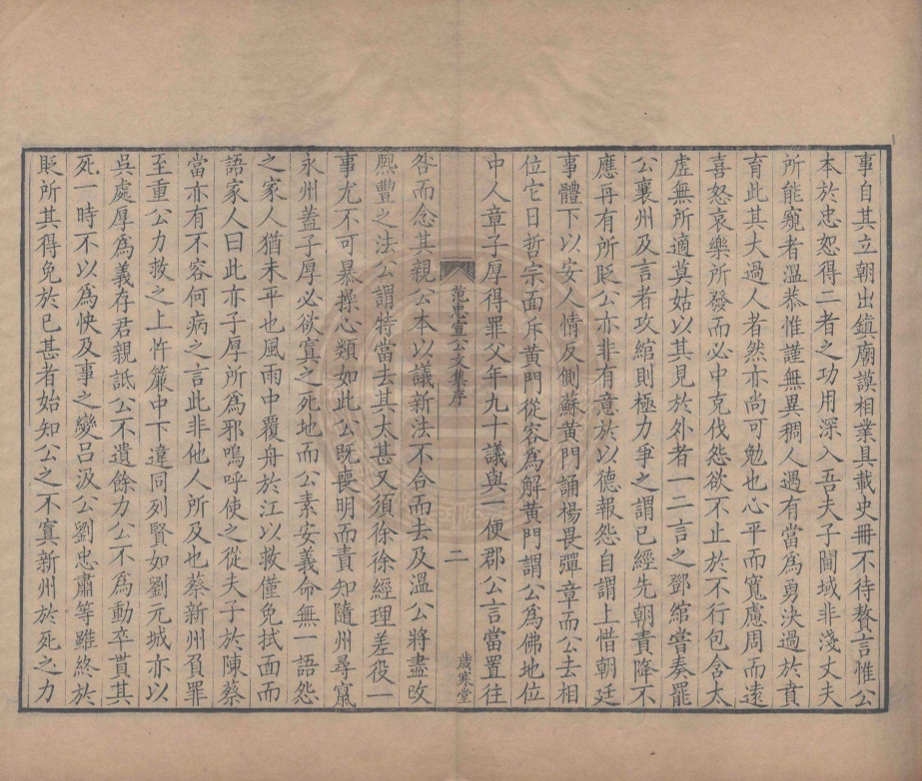 事自其立朝出鎮廟謨相業具載史冊不待贅言惟公
本於忠恕得二者之功用深入吾夫子閫域非淺丈夫
所能窺者溫恭惟謹無異稠人遇有當爲勇決過於賁
育此其大過人者然亦尚可勉也心平而寬慮周而遠
喜怒哀樂所發而必中克伐怨欲不止於不行包含太
虛無所適莫姑以其見於外者一二言之鄧綰嘗奏罷
公襄州及言者攻綰則極力爭之謂已經先朝責降不
應再有所貶公亦非有意於以德報怨自謂上惜朝廷
事體下以安人情反側蘇黃門誦楊畏彈章而公去相
位它日哲宗面斥黃門從容爲解黃門謂公爲佛地位
中人章子厚得罪父年九十議與一便郡公言當置往
咎而念其親公本以議新法不合而去及溫公將盡改
熈豐之法公謂特當去其大甚又須徐徐經理差役一
事尤不可暴操心類如此公既喪明而責知隨州尋竄
永州蓋子厚必欲寘之死地而公素安義命無一語怨
之家人猶未平也風雨中覆舟於江以救僅免拭面而
語家人曰此亦子厚所爲邪嗚呼使之從夫子於陳蔡
當亦有不容何病之言此非他人所及也蔡新州負罪
至重公力救之上忤簾中下違同列賢如劉元城亦以
吳處厚爲義存君親詆公不遺餘力公不爲動卒貰其
死一時不以爲快及事之變呂汲公劉忠肅等雖終於
貶所其得免於已甚者始知公之不寘新州於死之力
范忠宣公文集序
二
歲寒堂